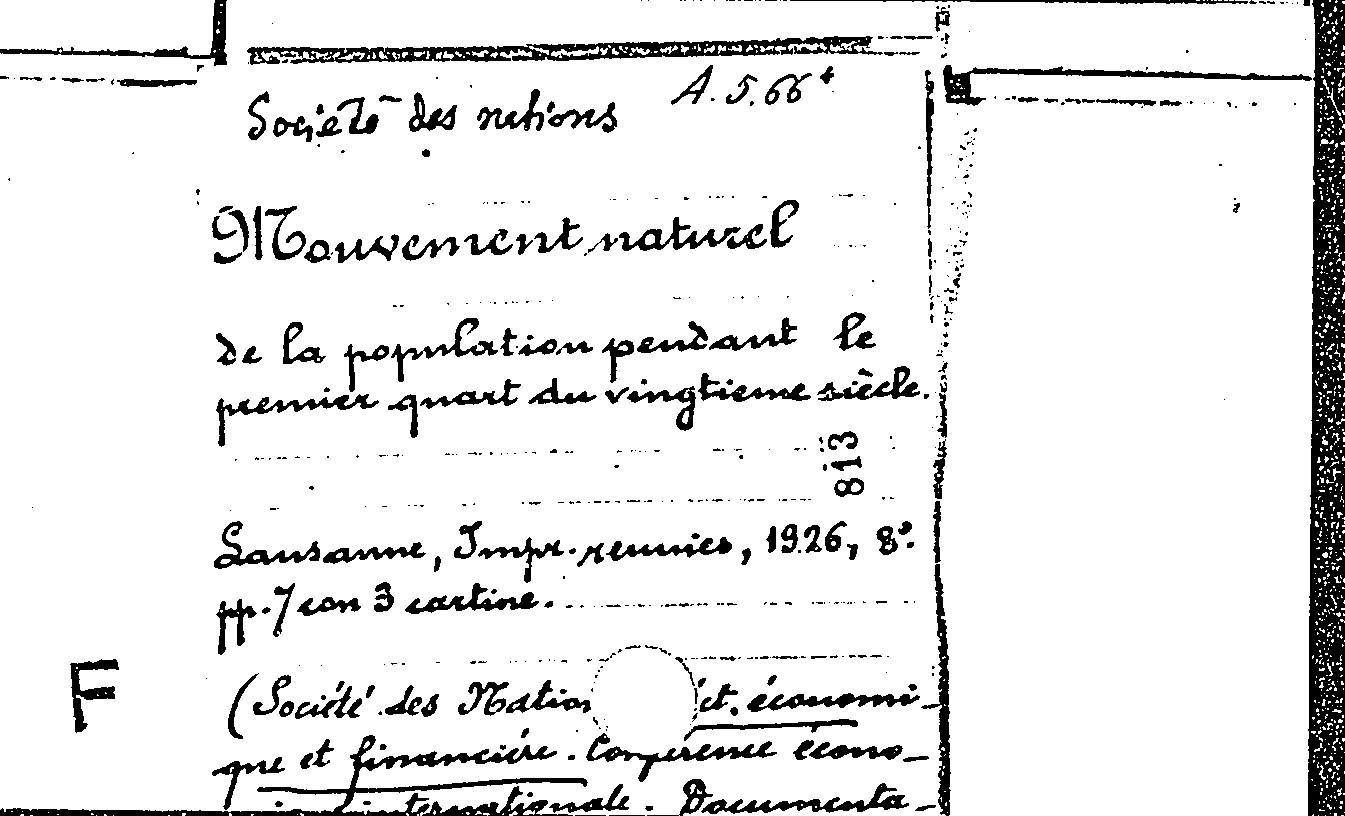 Société des nations A.5.66
Mouvement naturel
de la population pendant le
premier quart du vingtieme siècle.
813
Lausanne, Impr. reunies, 1926, 8º.
pp. 7 con 3 cartine.
F
(Société des Nation ct. économi-
que et financiére. Conference écono-
internationale. Documenta-